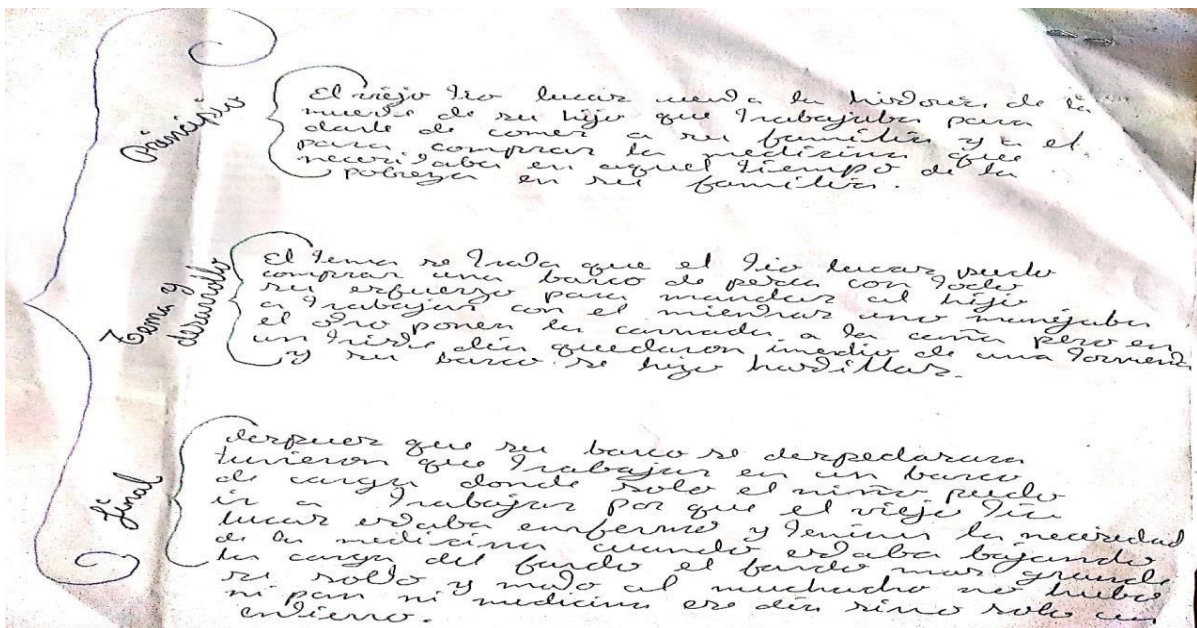 Principio
El viejo tio lucas cuenta la historia de la
muerte de su hijo que trabajaba para
darle de comer a su familia y a el
para comprar la medicina que
necesitaba en aquel tiempo de la
pobreza en su familia.
Tema y
desarrollo
El tema se trata que el tio lucas pudo
comprar una barco de pesca con todo
su esfuerzo para mandar al hijo
a trabajar con el mientras uno manejaba
el otro ponen la carnada a la caña pero en
un triste dia quedaron imedio de una tormenta
y su barco se hizo hastillas.
Final
despues que su barco se despedasara
tuvieron que trabajar en un barco
de carga donde solo el niño pudo
ir a trabajar por que el viejo tio
lucas estaba enfermo y tenian la necesidad
de la medicina cuando estaba bajando
la carga del fardo el fardo mas grande
se solto y mato al muchacho no hubo
ni pan ni medicina ese dia sino solo un
entierro.